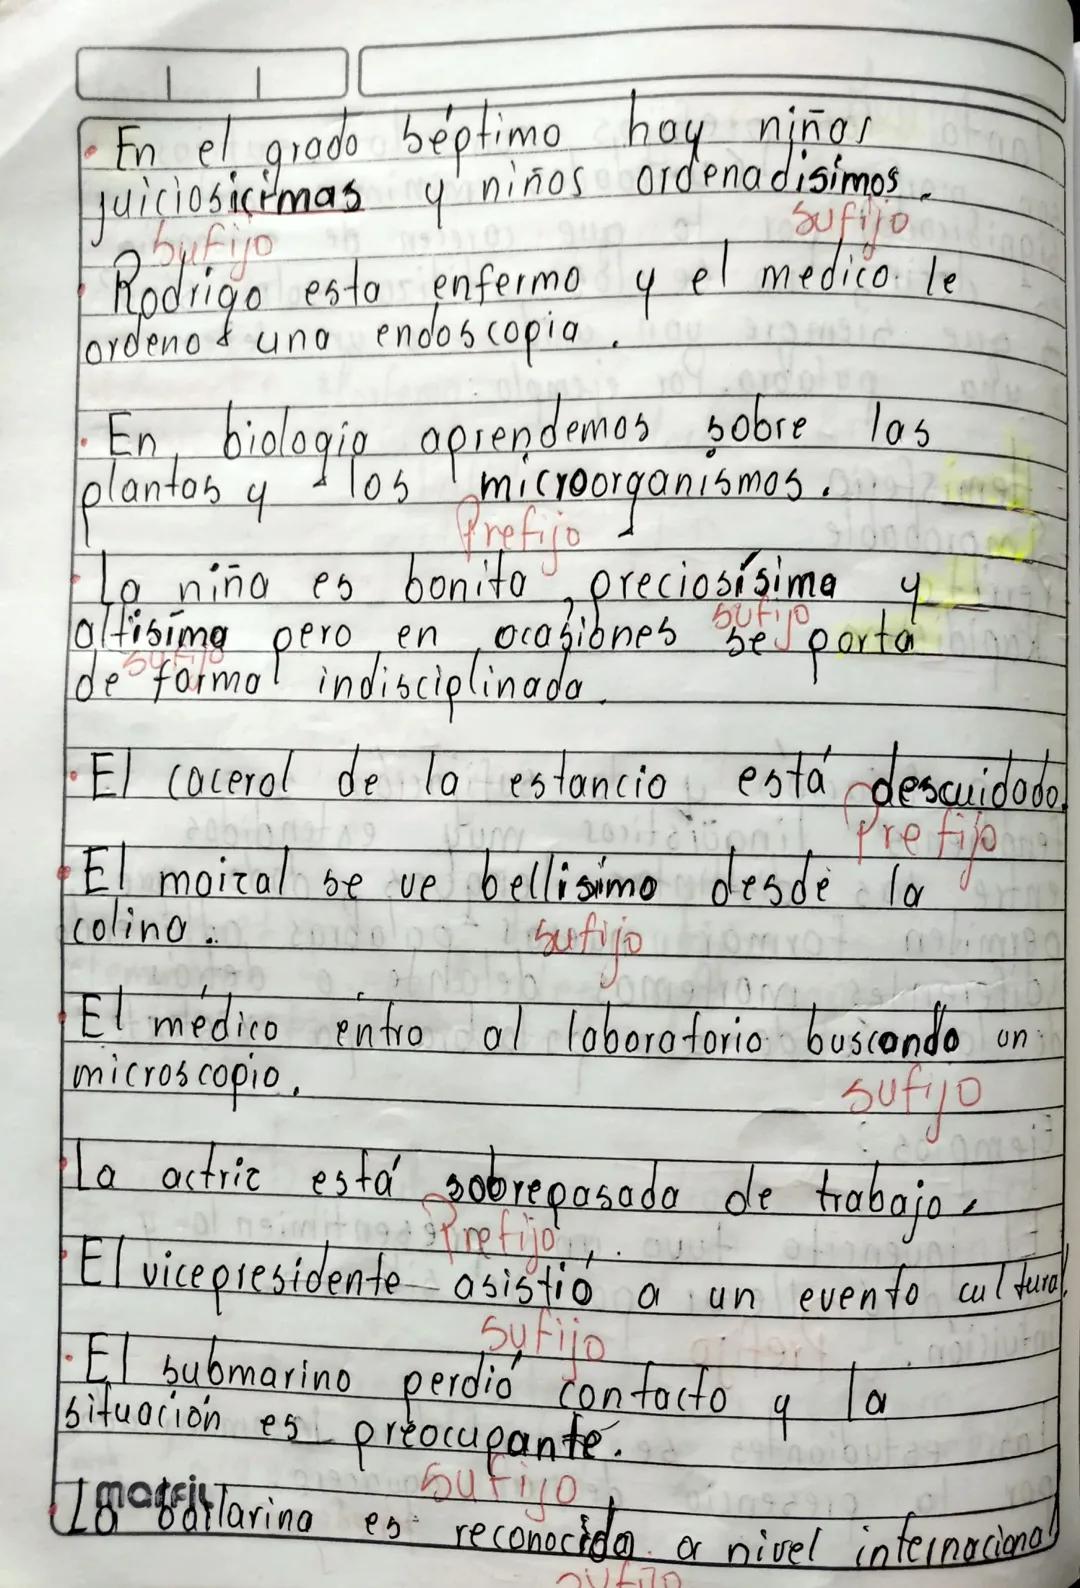 • En el grado séptimo hay niñas
juiciosicimas y niños ordenadisimos.
sufijo sufijo
• Rodrigo esta enfermo y el medico le
ordeno una endoscopia.
• En biologia aprendemos sobre las
plantas y los microorganismos.
Prefijo
• La niña es bonita, preciosísima y
altísima pero en ocasiones se porta
sufijo
de forma indisciplinada.
sufijo
• El cacerol de la estancia está descuidado.
Prefijo
• El maizal se ve bellisimo desde la
colina.
sufijo
• El médico entro al laboratorio buscando un
microscopio.
sufijo
• La actriz está sobrepasada de trabajo.
Prefijo
• El vicepresidente asistió a un evento cultural.
Sufijo
• El submarino perdió contacto y la
situación es preocupante.
sufijo
• La bailarina es reconocida a nivel internacional
sufijo